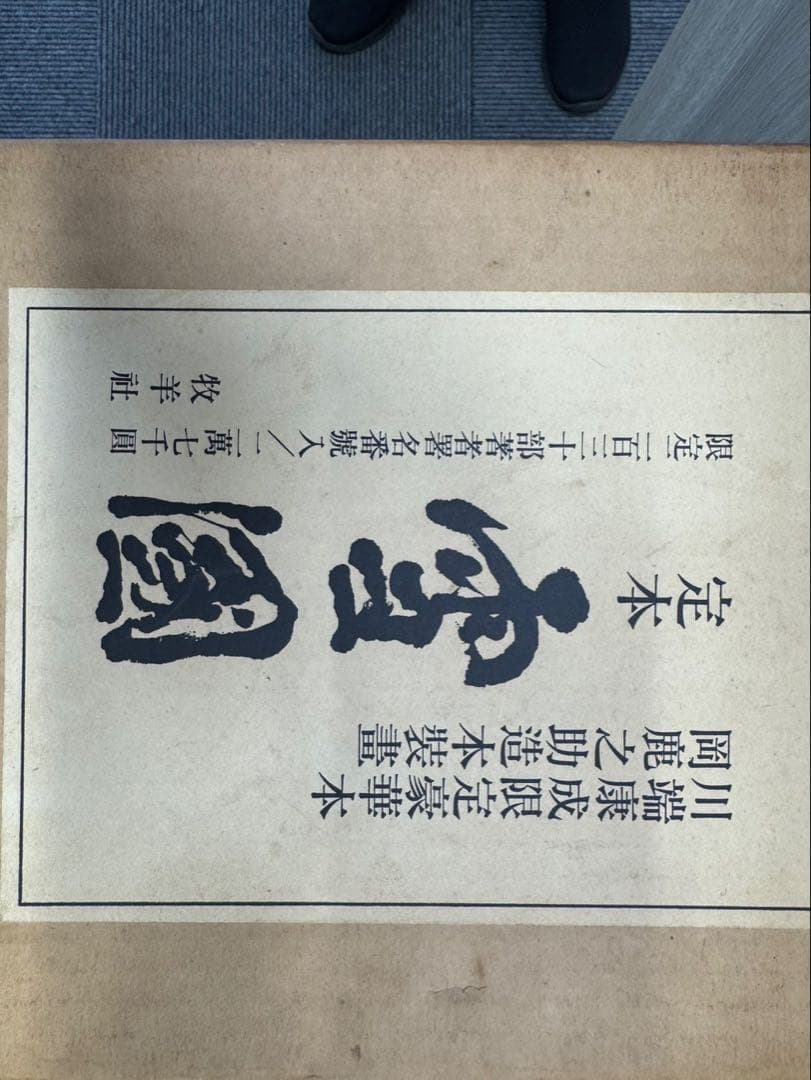 川端康成限定豪華本
岡鹿之助造本装畫
定本
雪國
限定二百三十部著者署名番號入／二萬七千圓
牧羊社